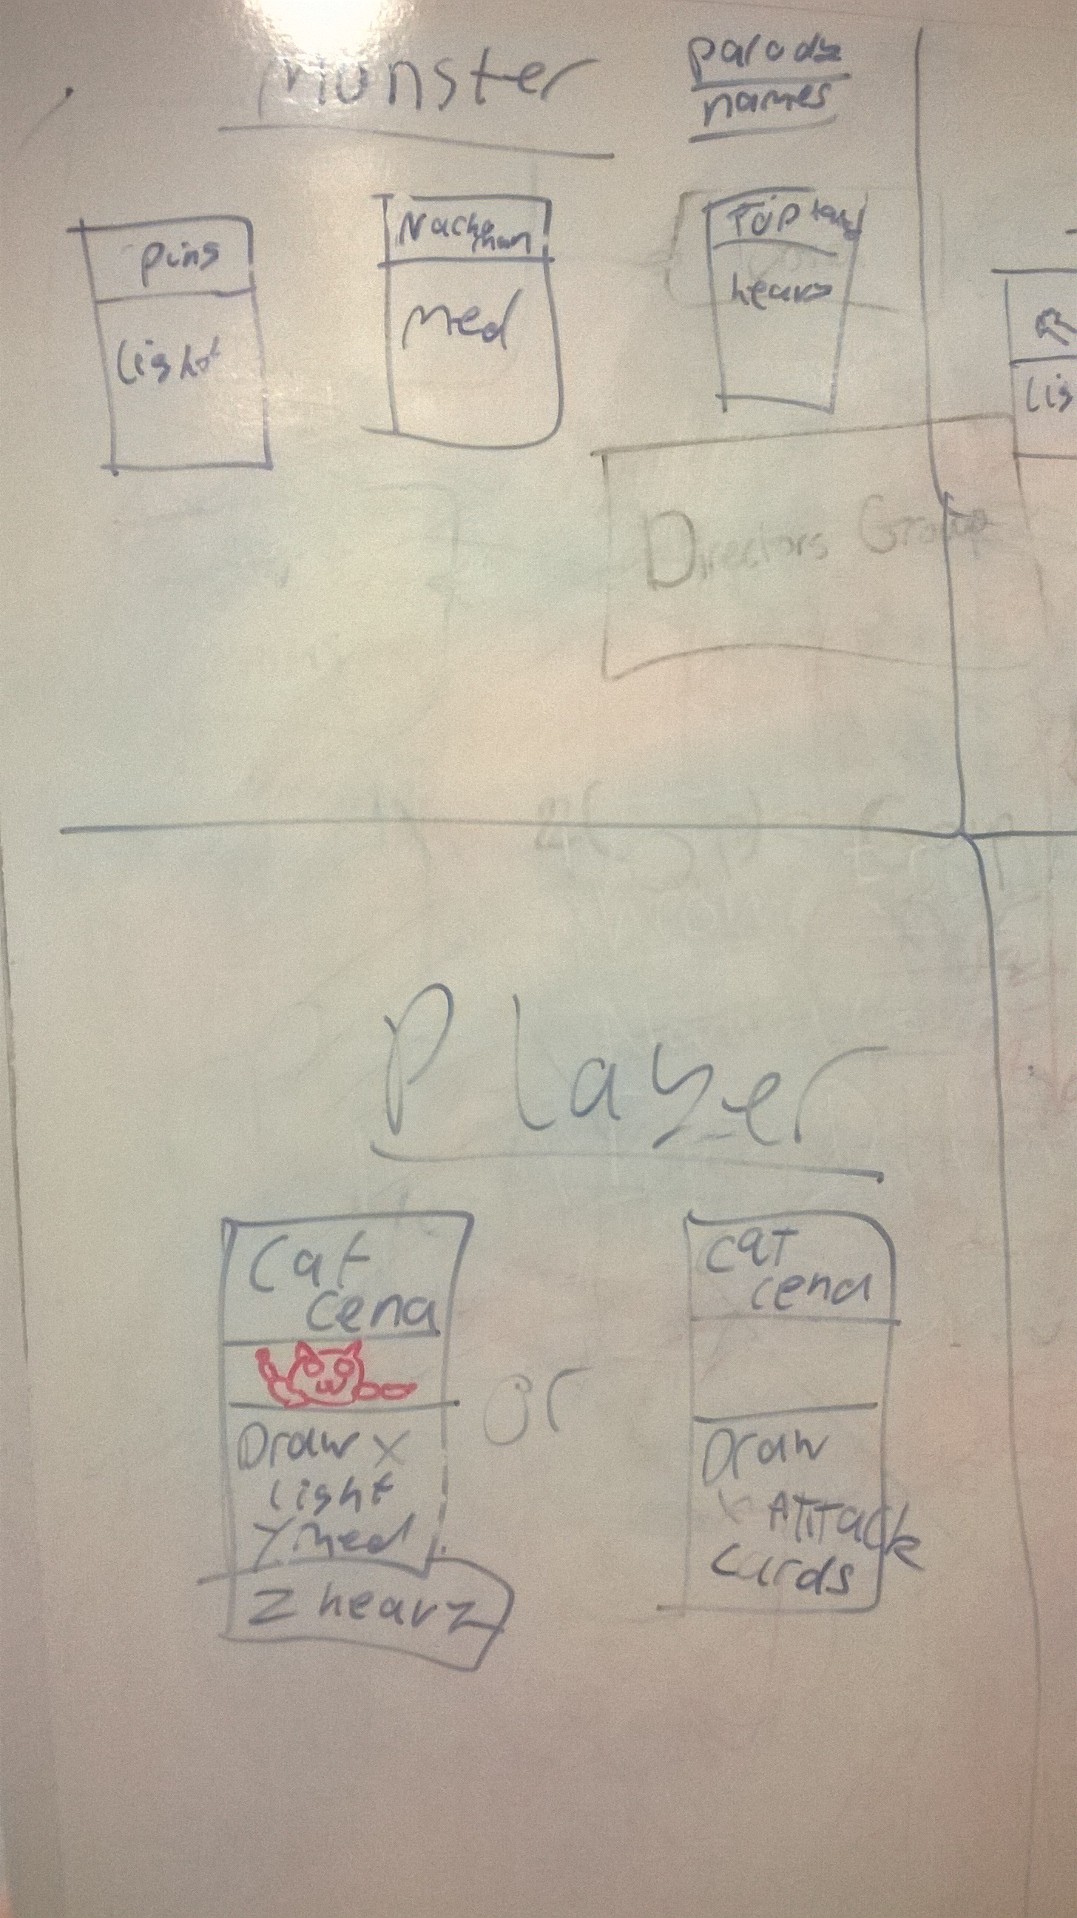 Monster
parody
names
pins
light
Nacho
man
Med
heavy
Directors Group
Player
Cat
cena
Draw X
Light
Y Med
Z heavy
or
cat
cena
Draw
X Attack
cards